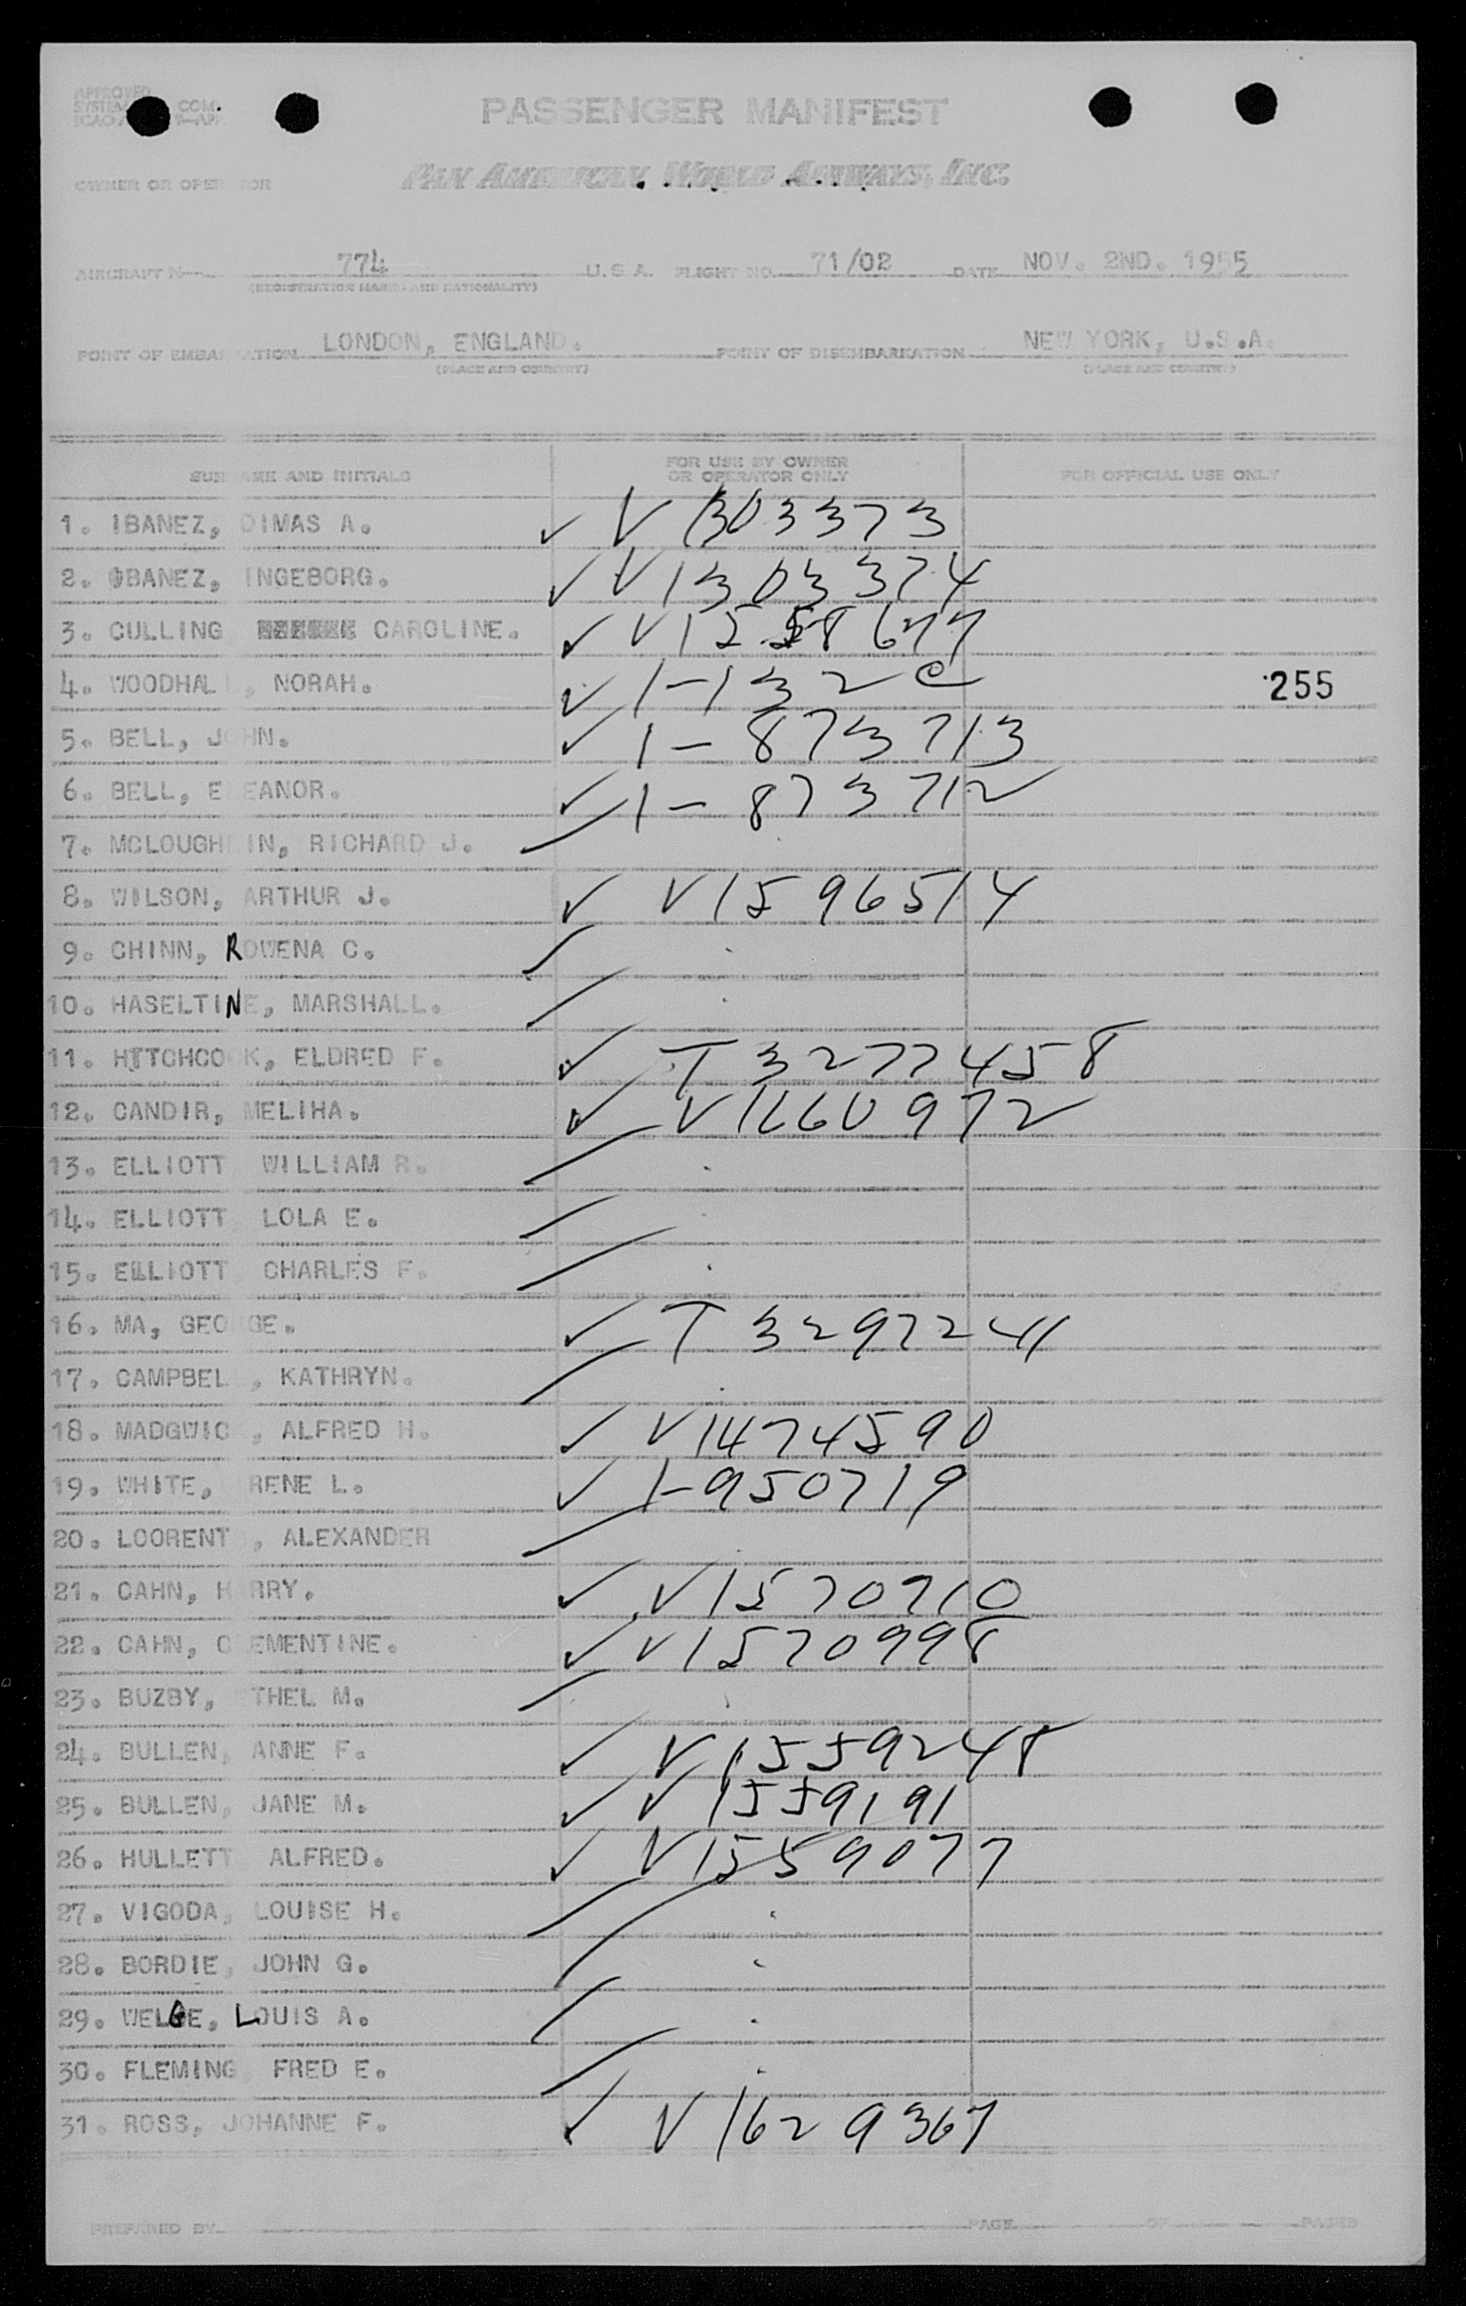 APPROVED
SYSTEM COM.
PASSENGER MANIFEST
OWNER OR OPERATOR PAN AMERICAN WORLD AIRWAYS, INC.
AIRCRAFT 774 U.S.A. FLIGHT NO. 71/02 DATE NOV. 2ND. 1955
(REGISTRATION MARKS AND NATIONALITY)
POINT OF EMBARKATION LONDON, ENGLAND. POINT OF DISEMBARKATION NEW YORK, U.S.A.
(PLACE AND COUNTRY) (PLACE AND COUNTRY)
SURNAME AND INITIALS FOR USE BY OWNER OR OPERATOR ONLY FOR OFFICIAL USE ONLY
1. IBANEZ, DIMAS A. ✓ V 1303373
2. IBANEZ, INGEBORG. ✓ V1303374
3. CULLING CAROLINE. ✓ V1258677
4. WOODHALL, NORAH. ✓ 1-132 255
5. BELL, JOHN. ✓ 1-873713
6. BELL, ELEANOR. ✓ 1-873712
7. MCLOUGHLIN, RICHARD J.
8. WILSON, ARTHUR J. ✓ V1596514
9. CHINN, ROWENA C.
10. HASELTINE, MARSHALL.
11. HITCHCOCK, ELDRED F. ✓ T 3277458
12. CANDIR, MELIHA. ✓ V1660972
13. ELLIOTT WILLIAM R.
14. ELLIOTT LOLA E.
15. ELLIOTT CHARLES F.
16. MA, GEORGE. ✓ T 3297241
17. CAMPBELL, KATHRYN.
18. MADGWICK, ALFRED H. ✓ V1474590
19. WHITE, IRENE L. ✓ 1-950719
20. LOORENT, ALEXANDER
21. CAHN, HARRY. ✓ V1570710
22. CAHN, CLEMENTINE. ✓ V1570998
23. BUZBY, ETHEL M.
24. BULLEN, ANNE F. ✓ V1559248
25. BULLEN, JANE M. ✓ V1559191
26. HULLETT ALFRED. ✓ V1559077
27. VIGODA, LOUISE H.
28. BORDIE, JOHN G.
29. WELGE, LOUIS A.
30. FLEMING FRED E.
31. ROSS, JOHANNE F. ✓ V1629367
PREPARED BY PAGE OF PAGES